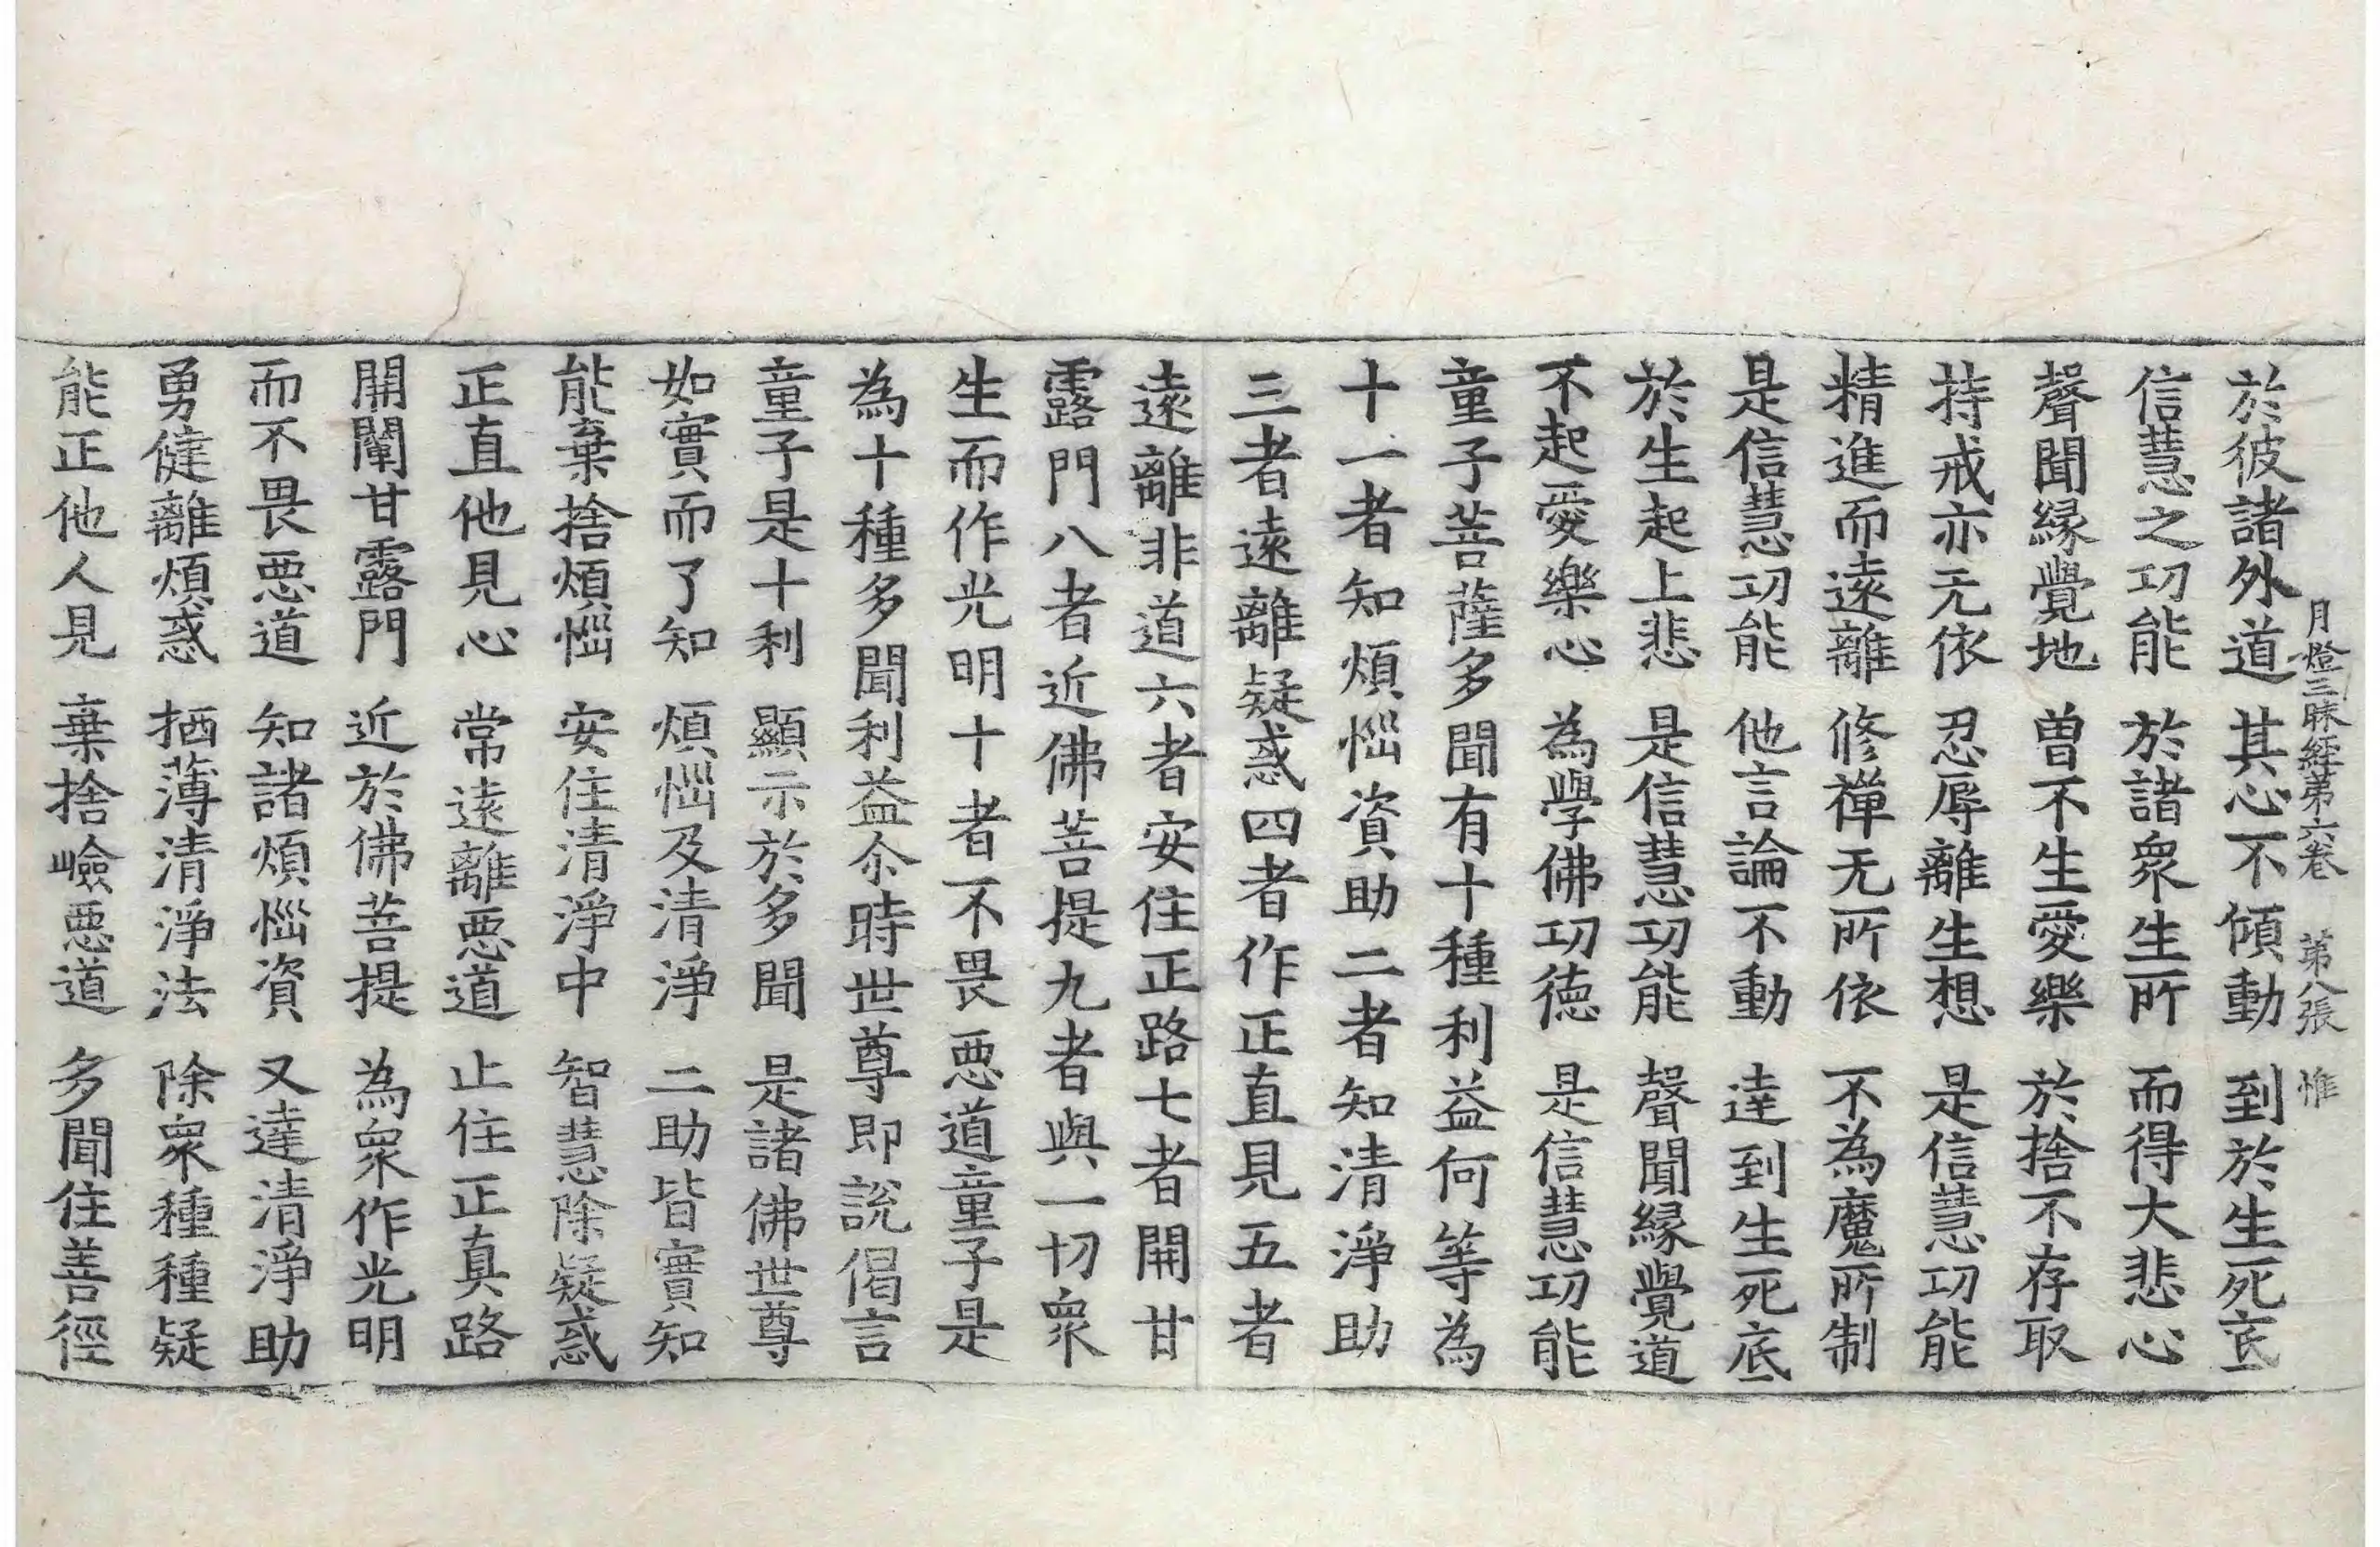 月燈三昧經第六卷　第八張　惟
於彼諸外道　其心不傾動　到於生死底
信慧之功能　於諸衆生所　而得大悲心
聲聞緣覺地　曾不生愛樂　於捨不存取
持戒亦无依　忍辱離生想　是信慧功能
精進而遠離　修禪无所依　不為魔所制
是信慧功能　他言論不動　達到生死底
於生起上悲　是信慧功能　聲聞緣覺道
不起愛樂心　為學佛功德　是信慧功能
童子菩薩多聞有十種利益何等為
十一者知煩惱資助二者知清淨助
三者遠離疑惑四者作正直見五者
遠離非道六者安住正路七者開甘
露門八者近佛菩提九者與一切衆
生而作光明十者不畏惡道童子是
為十種多聞利益尒時世尊即說偈言
童子是十利　顯示於多聞　是諸佛世尊
如實而了知　煩惱及清淨　二助皆實知
能棄捨煩惱　安住清淨中　智慧除疑惑
正直他見心　常遠離惡道　止住正真路
開闡甘露門　近於佛菩提　為衆作光明
而不畏惡道　知諸煩惱資　又達清淨助
勇健離煩惑　栖薄清淨法　除衆種種疑
能正他人見　棄捨嶮惡道　多聞住善徑